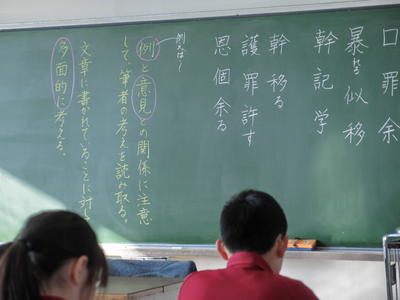 口罪余
暴れる似移
幹記学
幹移る
護罪許す
恩個余る
例えば〜
例と意見との関係に注意
して、筆者の考えを読み取る。
文章に書かれていることに対し
多面的に考える。